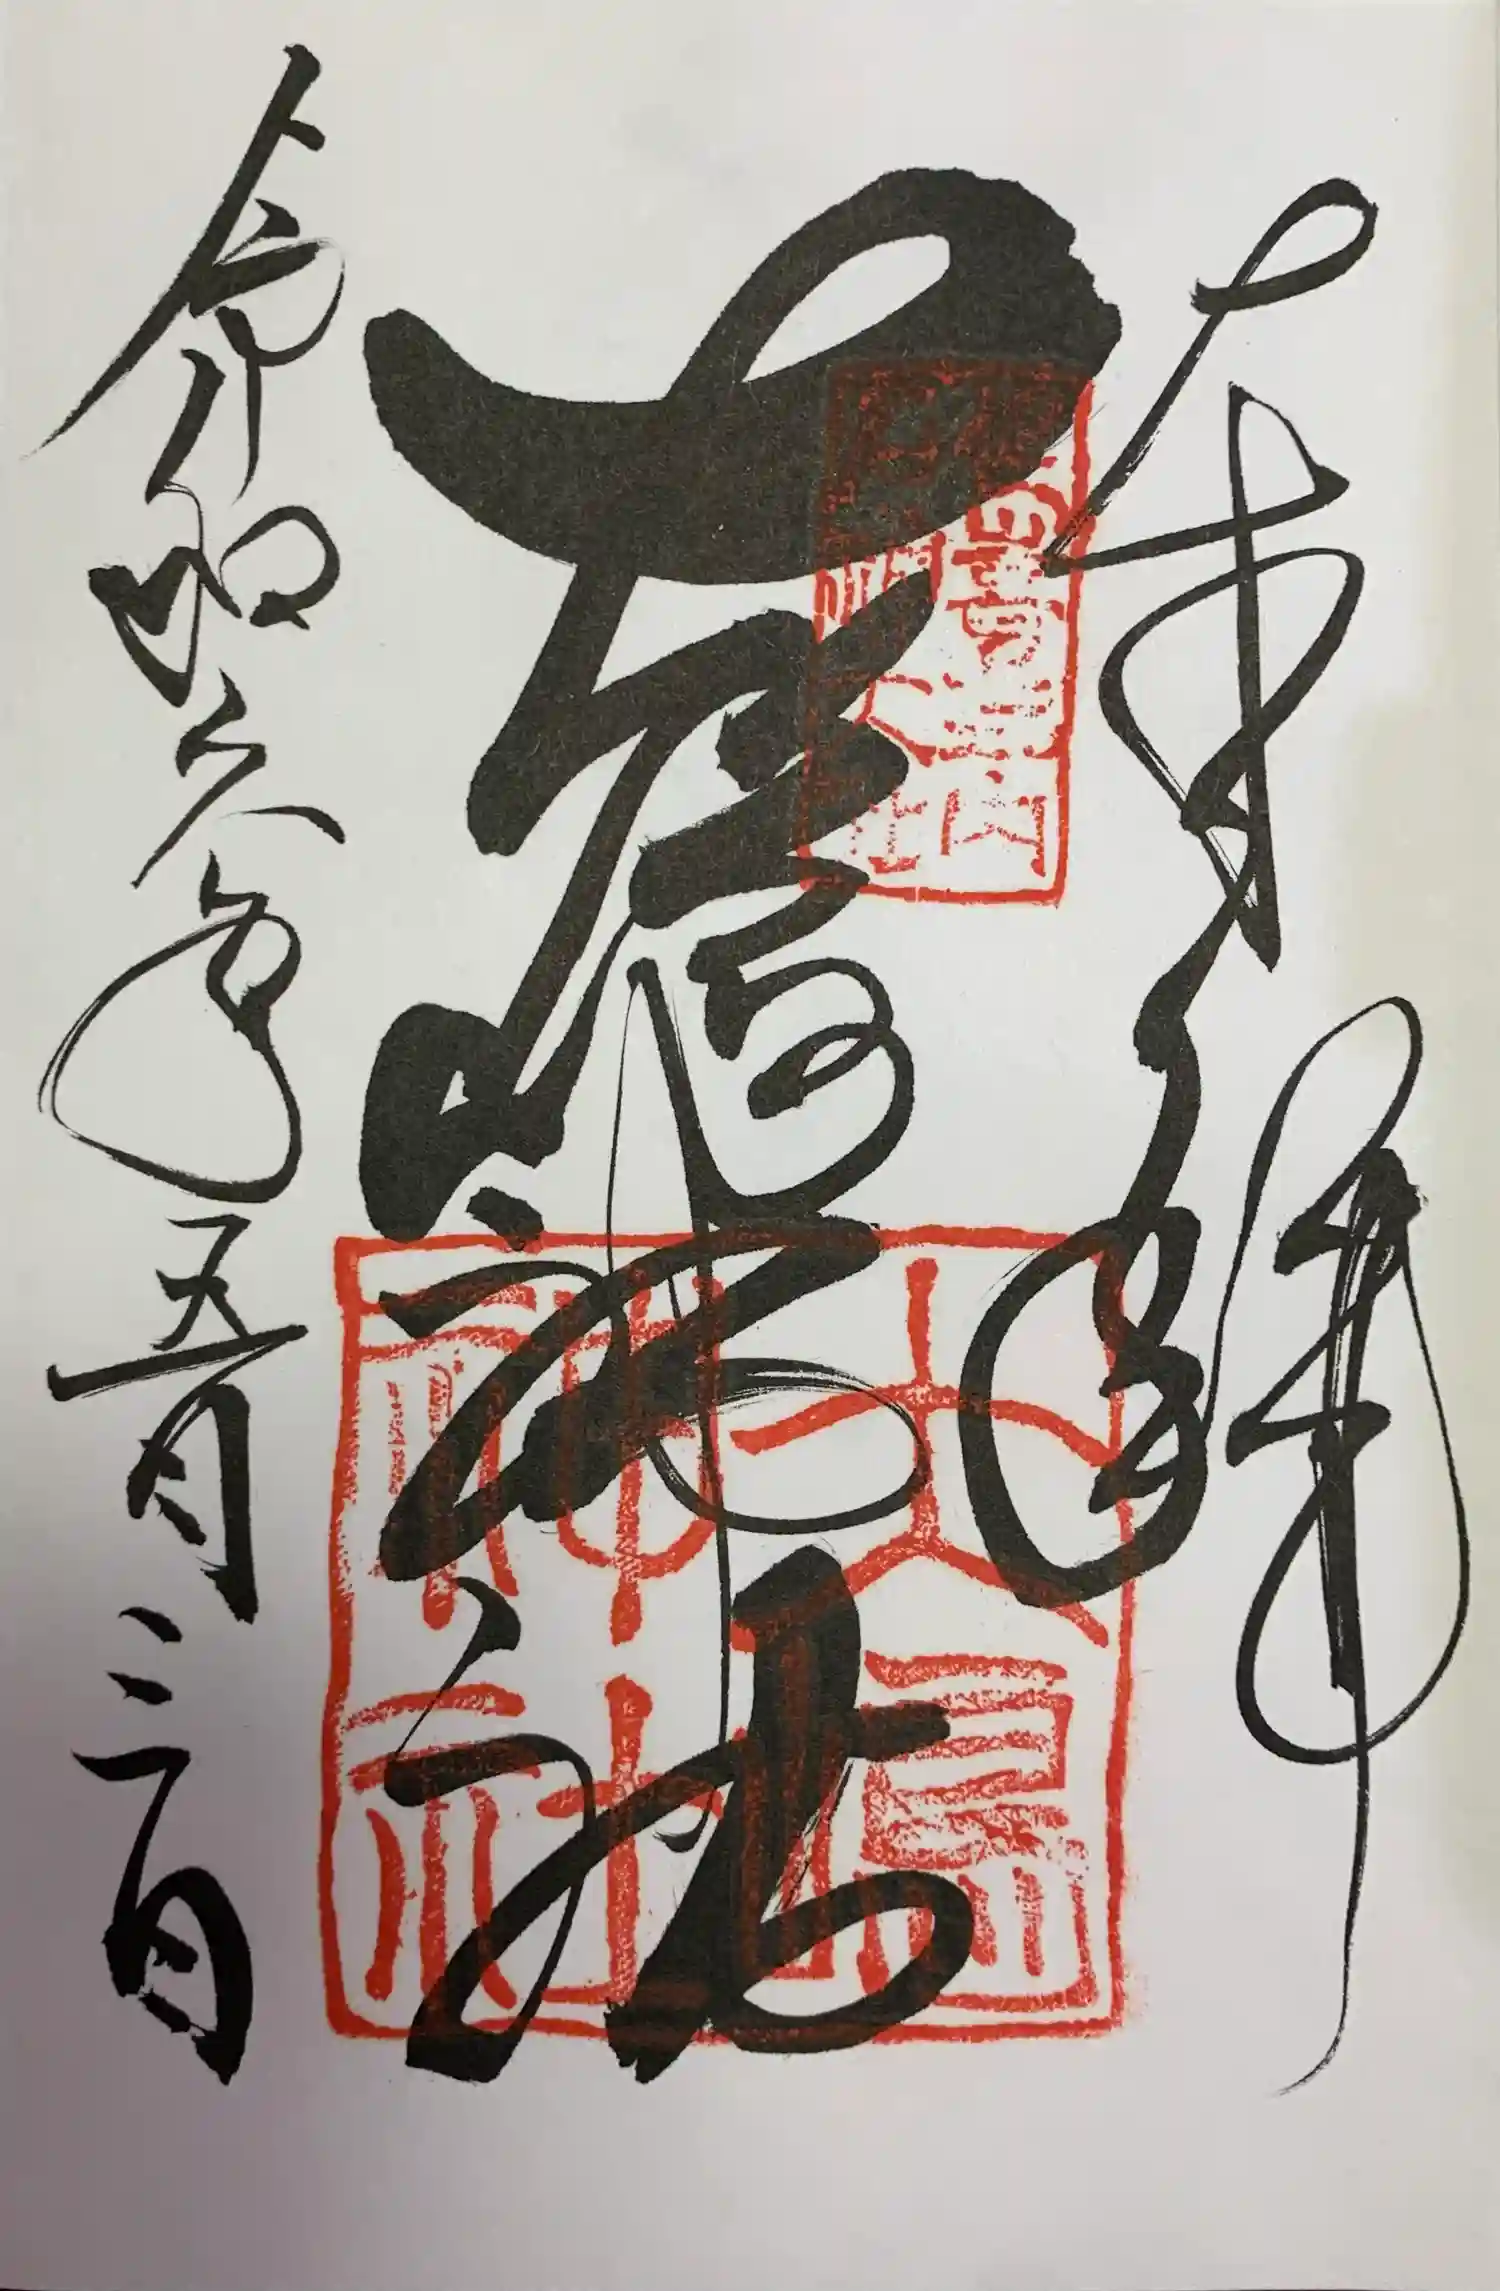 奉拝
大鳥神社
令和六年五月三日
大鳥
神社